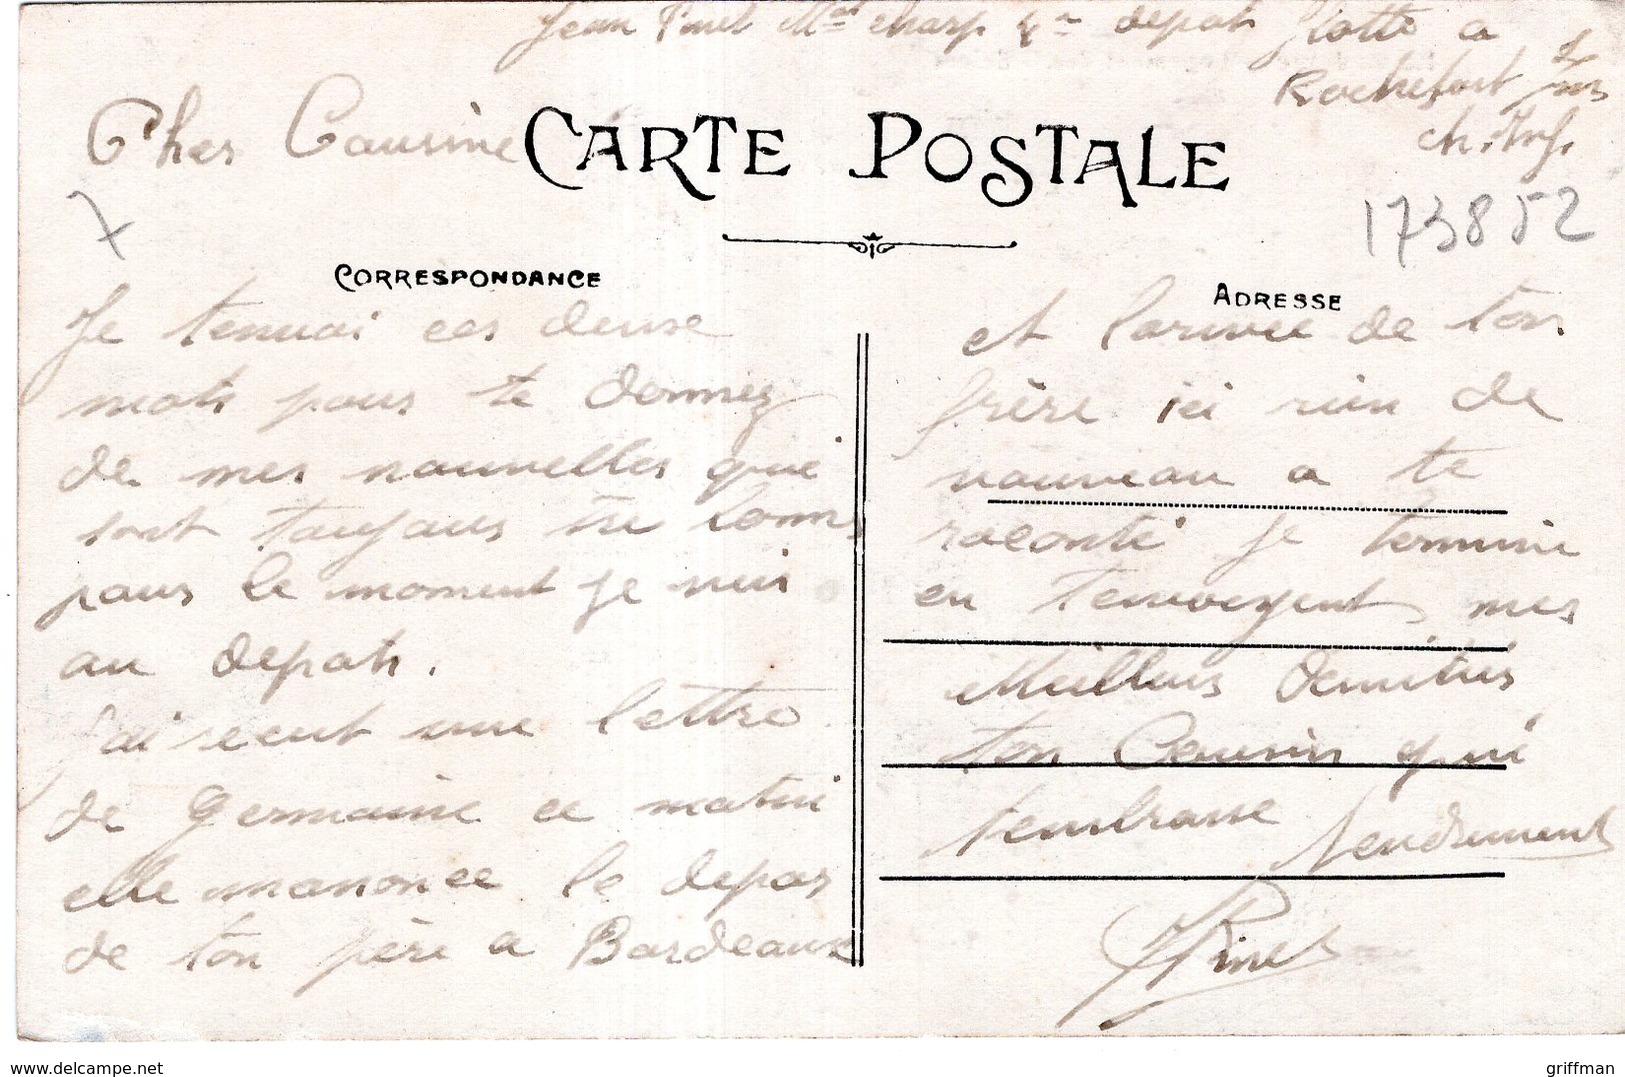 Jean Pinel Mot charp 4e depot flotte a
Rochefort s/m
ch. Inf.
Cher Causine
CARTE POSTALE
173852
CORRESPONDANCE
ADRESSE
Je tenvoi ces deuse
mots pour te donnez
de mes nouvelles qui
sont toujours bonns
pour le moment je suis
au depots.
J'ai recut une lettre
de Germaine ce matin
elle manonce le depar
de ton père a Bordeaux
et larivee de ton
frère ici rien de
nouveau a te
raconté je termine
en tenvoeyent mes
Meilleurs
ton Cousin qui
tembrasse tendrement
JPinel
www.delcampe.net
griffman